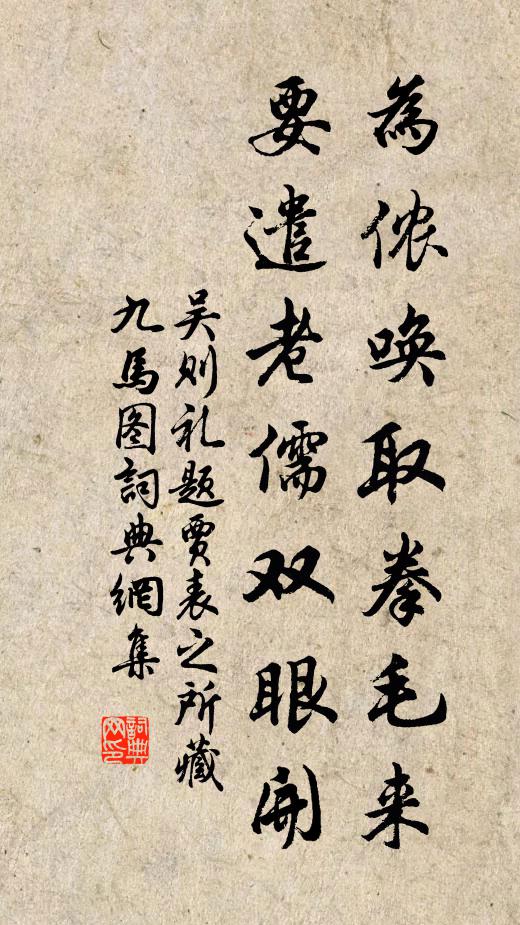 為侬唤取拳毛来
要遣老儒双眼開
吴则礼题贾表之所藏
九馬图詞典網集
詞典网印